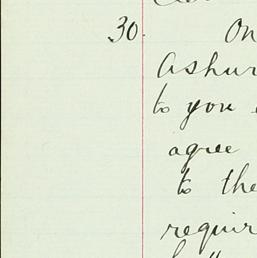 30. On
Ashur
to you
agree
to the
requir